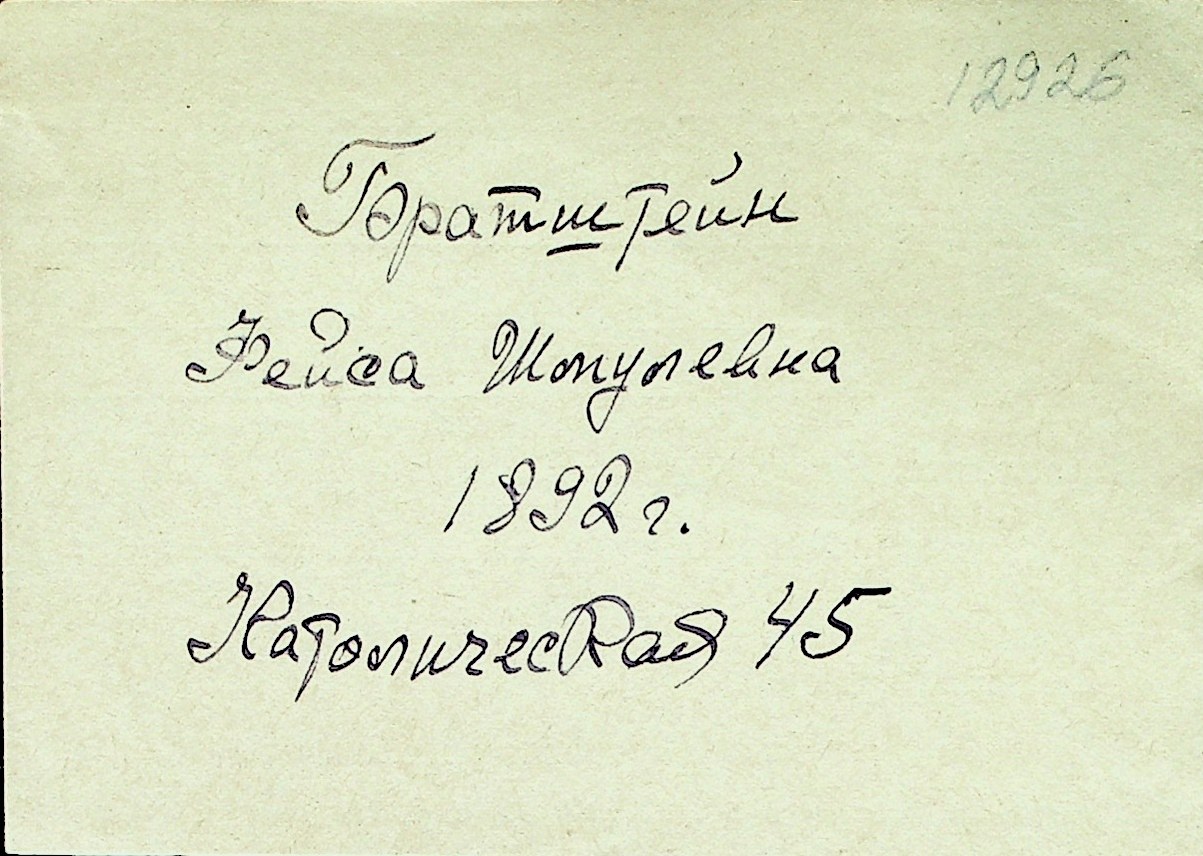 12926
Братштейн
Фейса Шмулевна
1892 г.
Католическая 45